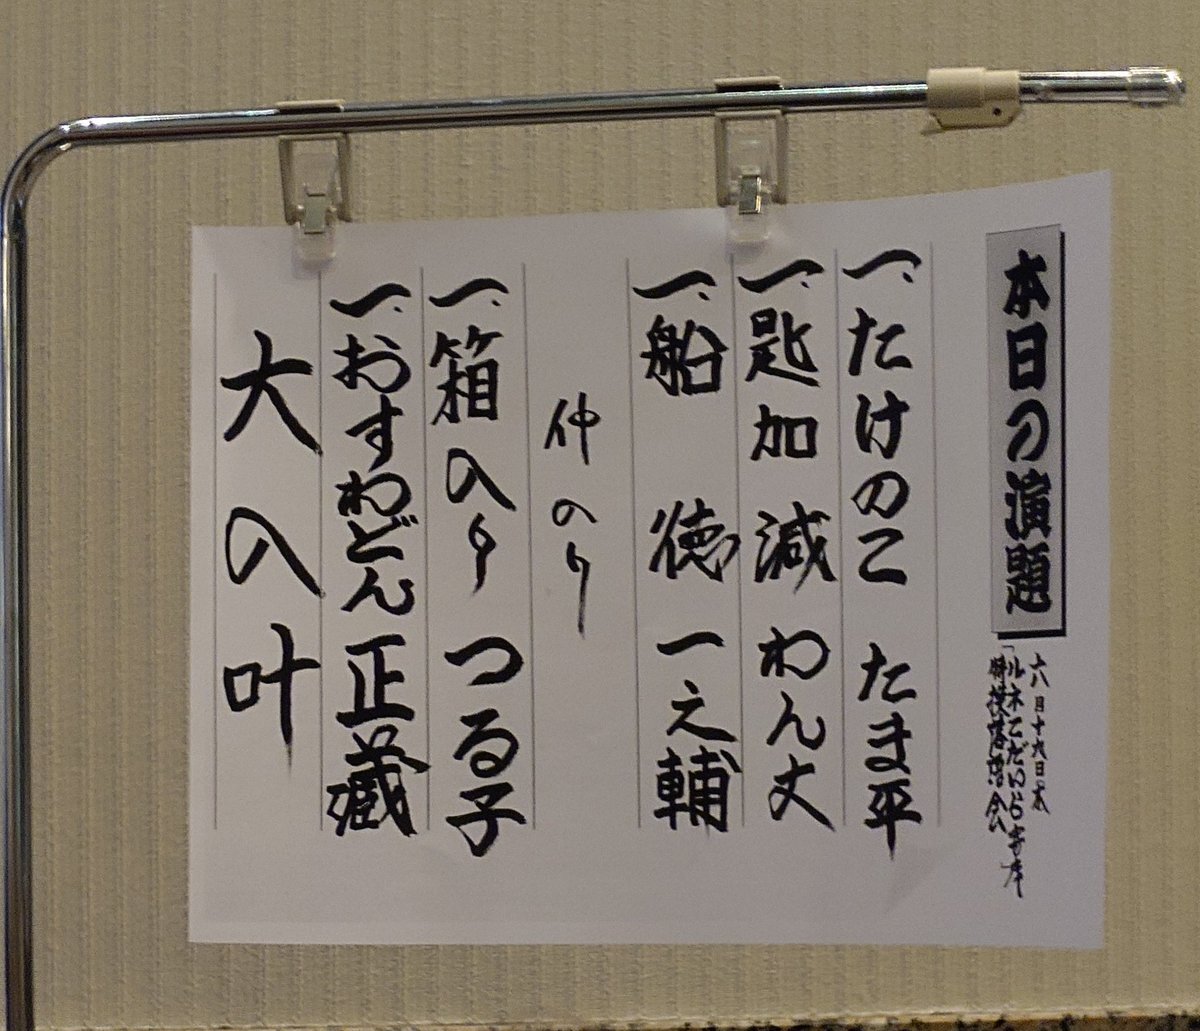 本日の演題
ルネこだいら寄席
特撰落語会
一、たけのこ たま平
一、匙加減 わん丈
一、船徳 一之輔
仲入り
一、箱入り つる子
一、おすわどん 正蔵
大入叶